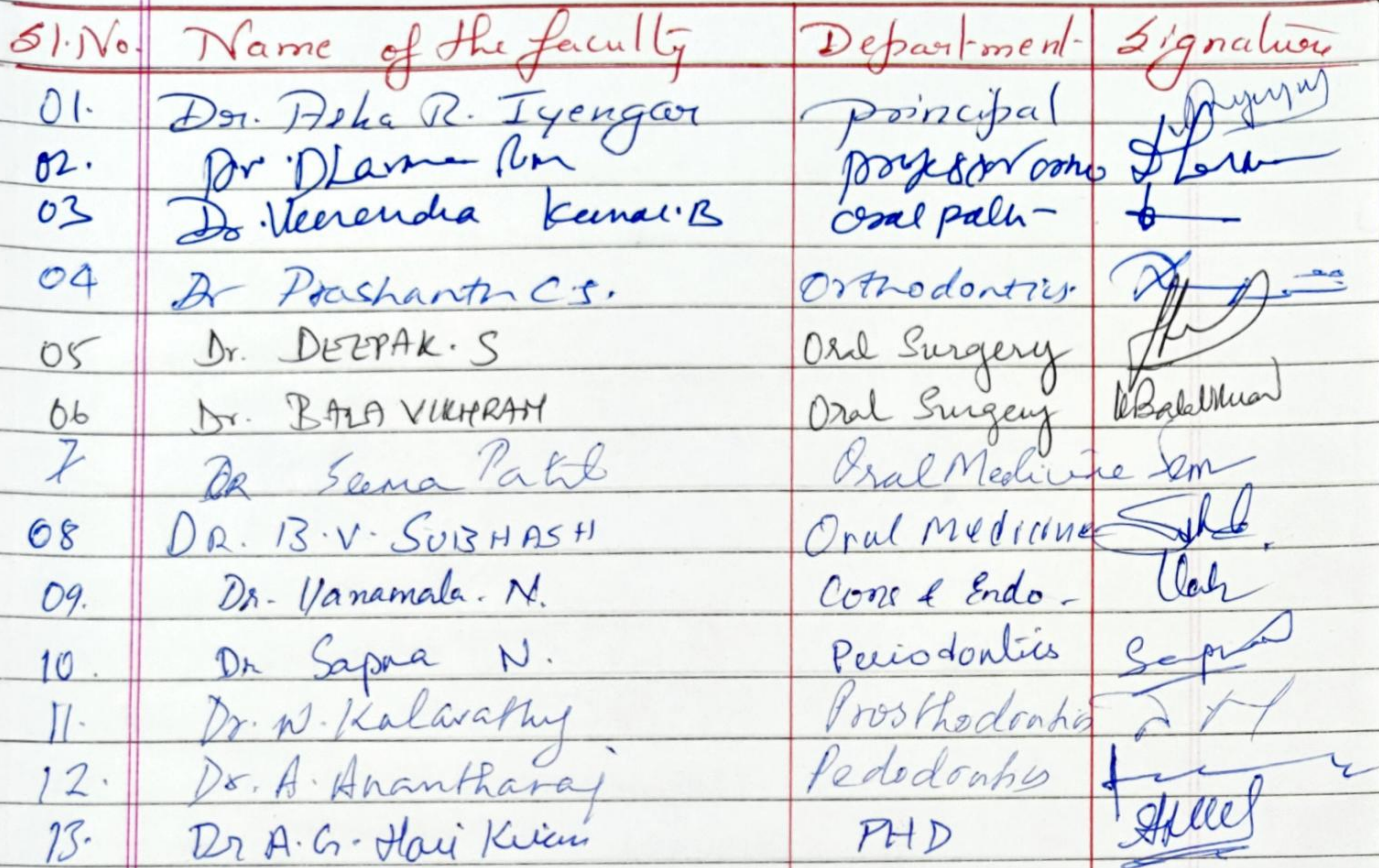 Sl.No. Name of the faculty Department Signature
01. Dr. Asha R. Iyengar Principal
02. Dr. Dharma professor ortho
03 Dr. Veerendra Kumar.B Oral path-
04 Dr Prashanth C.S. Orthodontics.
05 Dr. DEEPAK.S Oral Surgery
06 Dr. BALA VIKHRAM Oral Surgery
7 DR Seema Patil Oral Medicine
08 DR. B.V. SUBHASH Oral Medicine
09. Dr. Vanamala. N. Cons & Endo.
10. Dr Sapna N. Periodontics Sapna
11. Dr. N. Kalavathy Prosthodontics
12. Dr. A. Anantharaj Pedodontics
13. Dr A.G. Hari Kiran PHD